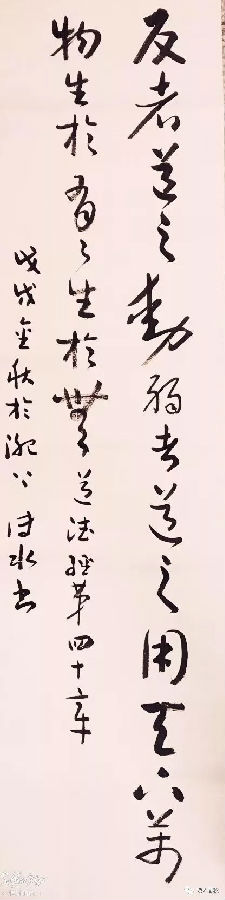 反者道之動弱者道之用天下萬
物生於有々生於無道德經第四十章
戊戌金秋於湘江 冰書